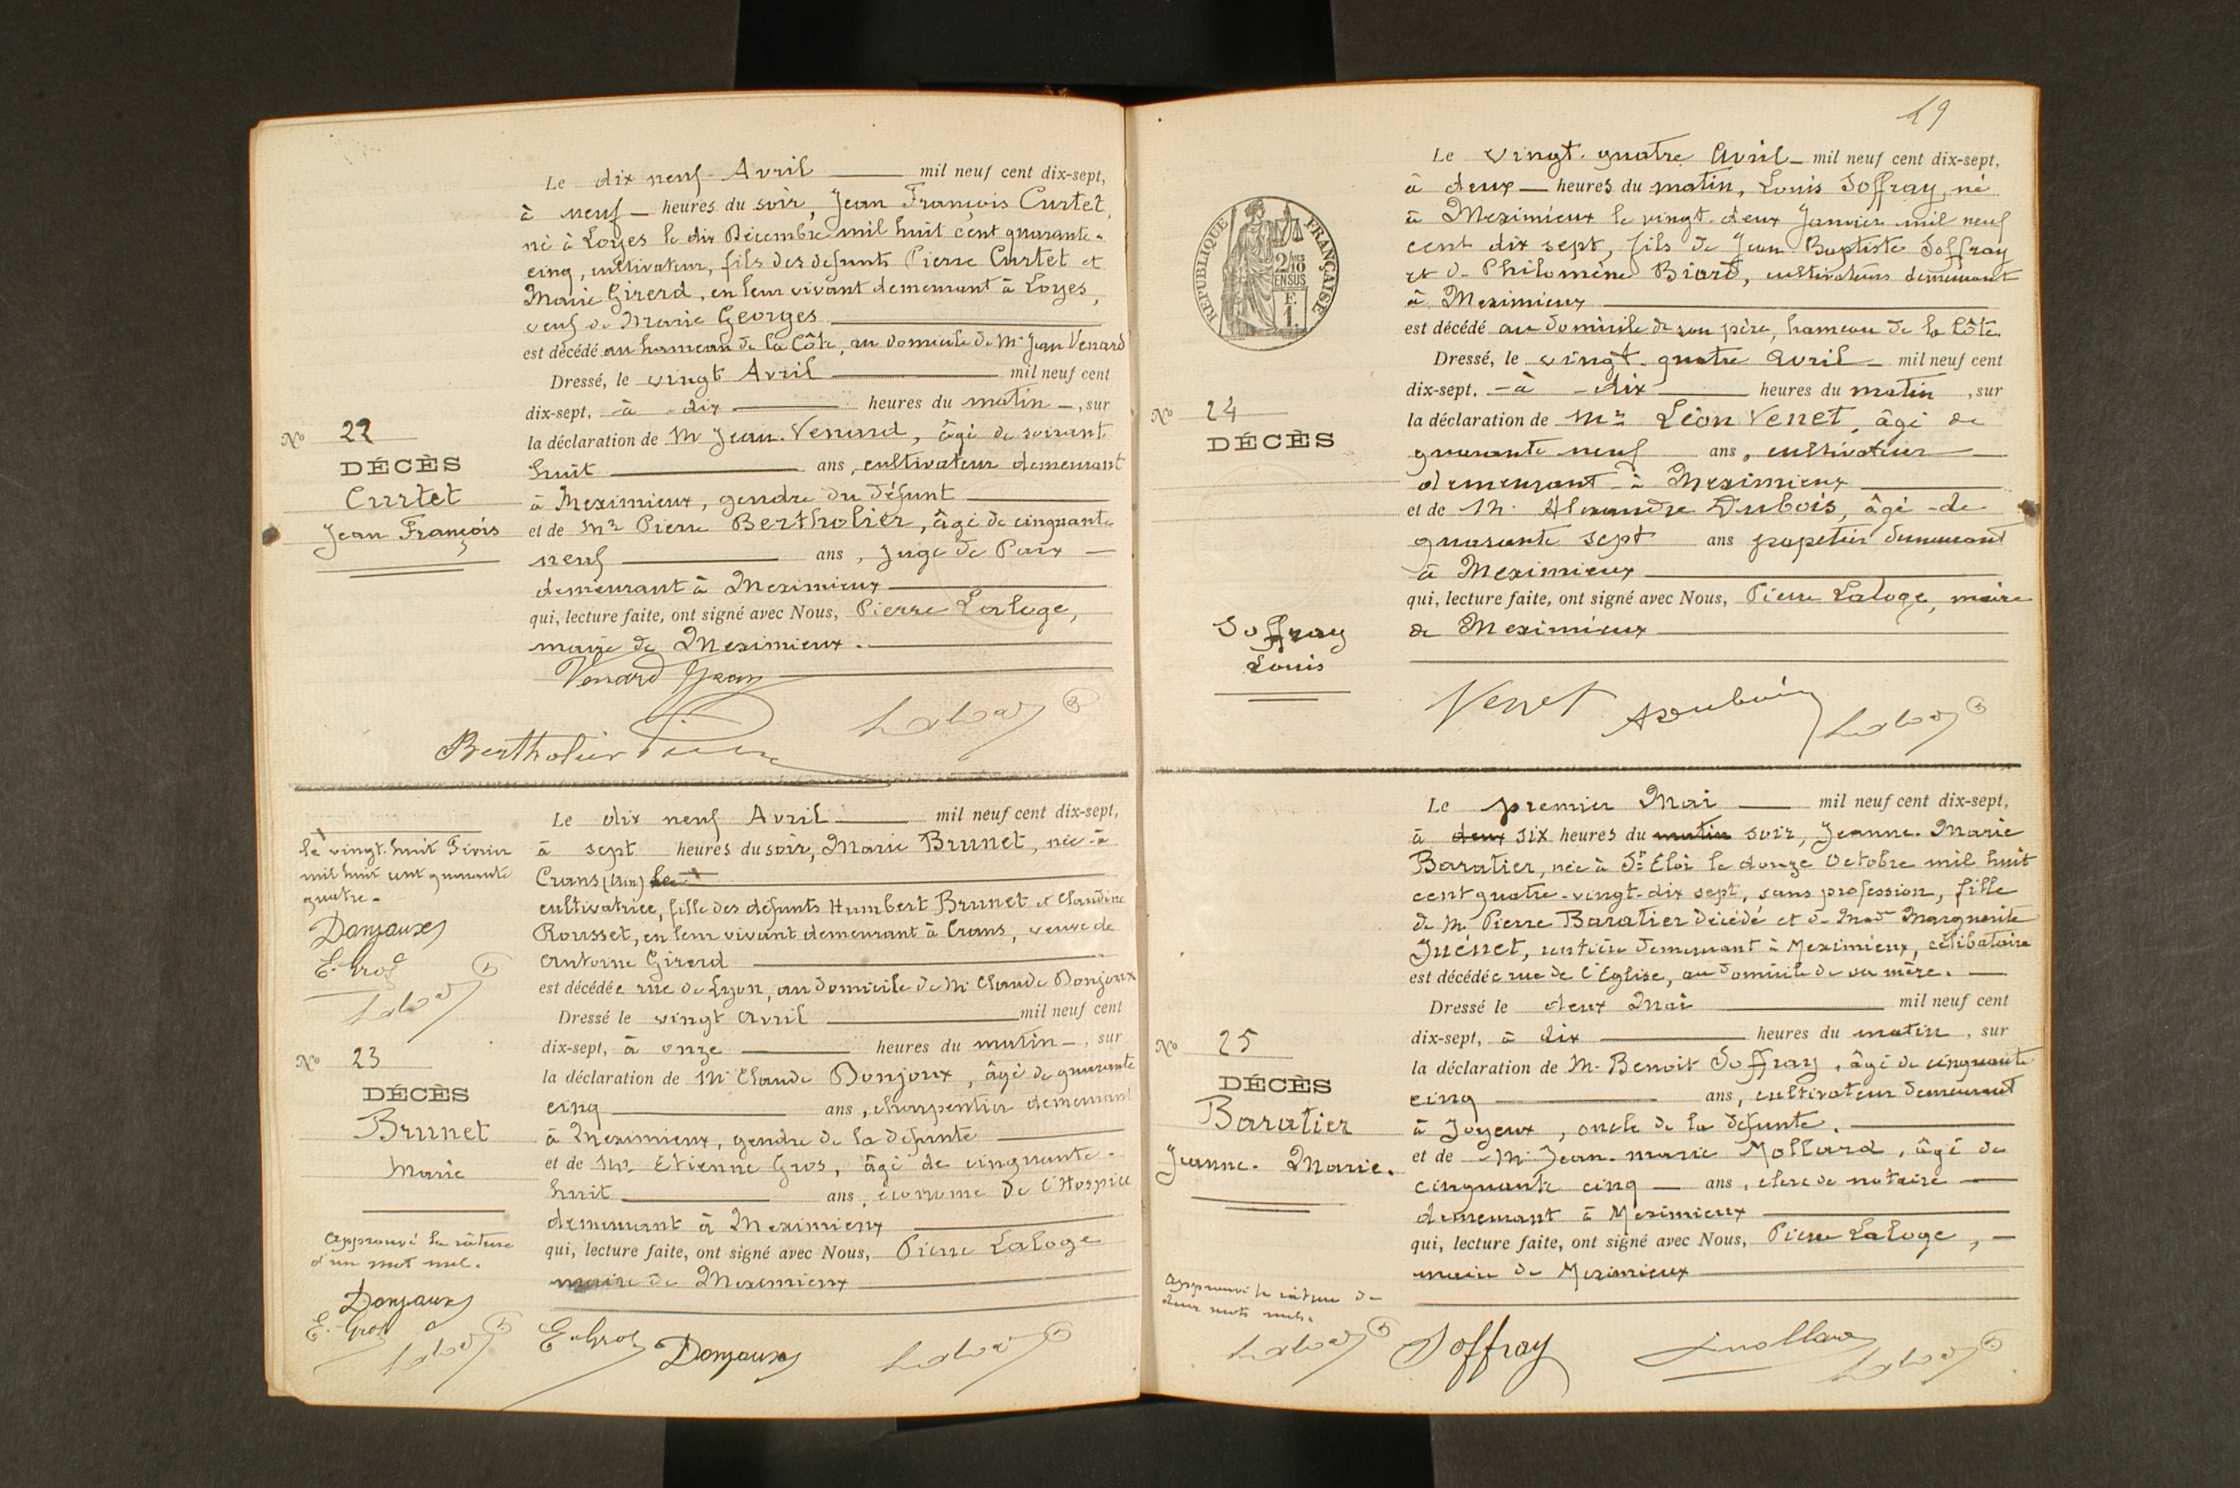 Le dix neuf Avril mil neuf cent dix-sept,
à neuf heures du soir, Jean François Curtet,
né à Loyes le dix Décembre mil huit cent quarante-
cinq, cultivateur, fils des defunts Pierre Curtet et
Marie Girerd, en leur vivant demeurant à Loyes,
veuf de Marie Georges
est décédé au hameau de la Côte, au domicile de Mr Jean Venard
Dressé, le vingt Avril mil neuf cent
dix-sept, à dix heures du matin, sur
la déclaration de Mr Jean Venard, âgé de soixante
huit ans, cultivateur demeurant
à Meximieux, gendre du défunt
et de Mr Pierre Bertholier, âgé de cinquante
neuf ans, Juge de Paix
demeurant à Meximieux
qui, lecture faite, ont signé avec Nous, Pierre Laloge,
maire de Meximieux.
Venard Jean
Bertholier
No 22
DÉCÈS
Curtet
Jean François
Le dix neuf Avril mil neuf cent dix-sept,
à sept heures du soir, Marie Brunet, née à
Crans (Ain) le
cultivatrice, fille des défunts Humbert Brunet et Claudine
Rousset, en leur vivant demeurant à Crans, veuve de
Antoine Girerd
est décédée rue de Lyon, au domicile de Mr Claude Donjoux
Dressé le vingt avril mil neuf cent
dix-sept, à onze heures du matin, sur
la déclaration de Mr Claude Donjoux, âgé de quarante
cinq ans, charpentier demeurant
à Meximieux, gendre de la défunte
et de Mr Etienne Gros, âgé de cinquante-
huit ans, économe de l'Hospice
demeurant à Meximieux
qui, lecture faite, ont signé avec Nous, Pierre Laloge
maire de Meximieux
E. Gros Donjoux
le vingt huit Février
mil huit cent quarante
quatre.
Donjoux
E. Gros
No 23
DÉCÈS
Brunet
Marie
Approuvé la rature
d'un mot nul.
Donjoux
E. Gros
19
RÉPUBLIQUE FRANÇAISE
2/10 EN SUS
F.
1.
Le vingt-quatre Avril mil neuf cent dix-sept,
à deux heures du matin, Louis Soffray, né
à Meximieux le vingt-deux Janvier mil neuf
cent dix sept, fils de Jean Baptiste Soffray
et de Philomène Biard, cultivateurs demeurant
à Meximieux
est décédé au domicile de son père, hameau de la Côte
Dressé, le vingt-quatre avril mil neuf cent
dix-sept, à dix heures du matin, sur
la déclaration de Mr Léon Venet, âgé de
quarante neuf ans, cultivateur
demeurant à Meximieux
et de M. Alexandre Dubois, âgé de
quarante sept ans papetier demeurant
à Meximieux
qui, lecture faite, ont signé avec Nous, Pierre Laloge, maire
de Meximieux
Venet ADubois
No 24
DÉCÈS
Soffray
Louis
Le premier Mai mil neuf cent dix-sept,
à deux six heures du matin soir, Jeanne-Marie
Baratier, née à St Eloi le douze Octobre mil huit
cent quatre-vingt-dix sept, sans profession, fille
de M. Pierre Baratier décédé et de Made Marguerite
Juénet, rentière demeurant à Meximieux, célibataire
est décédée rue de l'Eglise, au domicile de sa mère.
Dressé le deux Mai mil neuf cent
dix-sept, à dix heures du matin, sur
la déclaration de M. Benoit Soffray, âgé de cinquante
cinq ans, cultivateur demeurant
à Joyeux, oncle de la défunte.
et de Mr Jean-marie Mollard, âgé de
cinquante cinq ans, clerc de notaire
demeurant à Meximieux
qui, lecture faite, ont signé avec Nous, Pierre Laloge,
maire de Meximieux
Soffray Mollard
No 25
DÉCÈS
Baratier
Jeanne-Marie.
Approuvé la rature de
deux mots nuls.